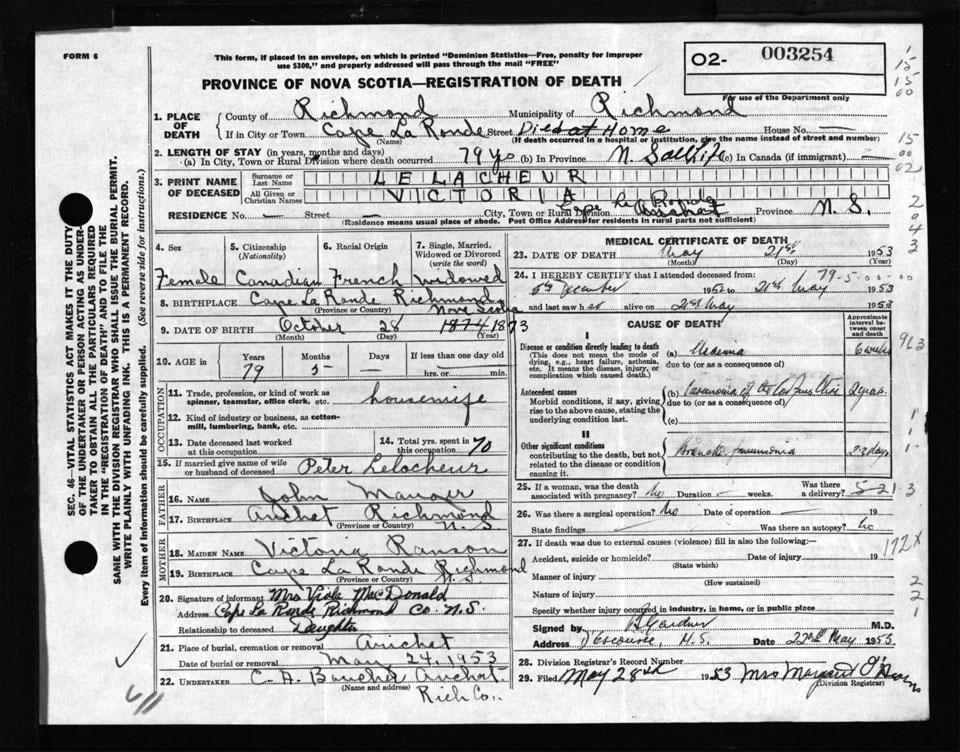 FORM 6
This form, if placed in an envelope, on which is printed "Dominion Statistics—Free, penalty for improper
use $300," and properly addressed will pass through the mail "FREE"
02- 003254
For use of the Department only
PROVINCE OF NOVA SCOTIA—REGISTRATION OF DEATH
1. PLACE OF DEATH
County of Richmond Municipality of Richmond
If in City or Town Cape La Ronde Street Died at Home House No. —
(Name) (If death occurred in a hospital or institution, give the name instead of street and number)
2. LENGTH OF STAY (in years, months and days)
(a) In City, Town or Rural Division where death occurred 79 ys (b) In Province N. S. (c) In Canada (if immigrant) —
3. PRINT NAME OF DECEASED
Surname or Last Name LE LACHEUR
All Given or Christian Names VICTORIA
RESIDENCE No. — Street — City, Town or Rural Division Cape La Ronde Arichat Province N. S.
(Residence means usual place of abode. Post Office Address for residents in rural parts not sufficient)
4. Sex 5. Citizenship (Nationality) 6. Racial Origin 7. Single, Married, Widowed or Divorced (write the word)
Female Canadian French widowed
8. BIRTHPLACE Cape La Ronde Richmond Nova Scotia
(Province or Country)
9. DATE OF BIRTH October 28 1874 1873
(Month) (Day) (Year)
10. AGE in Years Months Days If less than one day old
79 5 — — hrs. or — min.
OCCUPATION
11. Trade, profession, or kind of work as spinner, teamster, office clerk, etc. housewife
12. Kind of industry or business, as cotton-mill, lumbering, bank, etc.
13. Date deceased last worked at this occupation 14. Total yrs. spent in this occupation 70
15. If married give name of wife or husband of deceased Peter Lelacheur
FATHER
16. NAME John Mauger
17. BIRTHPLACE Arichat Richmond N. S
(Province or Country)
MOTHER
18. MAIDEN NAME Victoria Ranson
19. BIRTHPLACE Cape La Ronde Richmond N. S
(Province or Country)
20. Signature of informant Mrs Viola MacDonald
Address Cape La Ronde Richmond Co. N. S.
Relationship to deceased Daughter
21. Place of burial, cremation or removal Arichat
Date of burial or removal May 24, 1953
22. UNDERTAKER C. A. Boucher Arichat
(Name and address)
Rich Co.
MEDICAL CERTIFICATE OF DEATH
23. DATE OF DEATH May 21st 1953
(Month) (Day) (Year)
24. I HEREBY CERTIFY that I attended deceased from:
79-5-00-00
December 1952 to 21st May 1953
and last saw h er alive on 21st May 1953
CAUSE OF DEATH
Approximate interval between onset and death
I
Disease or condition directly leading to death (a) Uraemia
(This does not mean the mode of dying, e.g., heart failure, asthenia, etc. It means the disease, injury, or complication which caused death.)
due to (or as a consequence of)
Antecedent causes (b) Carcinoma of the 2 years
Morbid conditions, if any, giving rise to the above cause, stating the underlying condition last.
due to (or as a consequence of)
(c)
II
Other significant conditions contributing to the death, but not related to the disease or condition causing it.
pneumonia days
25. If a woman, was the death associated with pregnancy? No Duration — weeks. Was there a delivery?
5-21-3
26. Was there a surgical operation? No Date of operation — 19
State findings Was there an autopsy? No
27. If death was due to external causes (violence) fill in also the following:—
Accident, suicide or homicide? Date of injury 19
(State which)
Manner of injury
(How sustained)
Nature of injury
Specify whether injury occurred in industry, in home, or in public place
Signed by B Gardner M.D.
Address D'Escousse, N.S. Date 22nd May 1953
28. Division Registrar's Record Number
29. Filed May 28th 1953 Mrs Margaret
(Division Registrar)
172X
SEC. 46—VITAL STATISTICS ACT MAKES IT THE DUTY
OF THE UNDERTAKER OR PERSON ACTING AS UNDER-
TAKER TO OBTAIN ALL THE PARTICULARS REQUIRED
IN THE "REGISTRATION OF DEATH" AND TO FILE THE
SAME WITH THE DIVISION REGISTRAR WHO SHALL ISSUE THE BURIAL PERMIT.
WRITE PLAINLY WITH UNFADING INK. THIS IS A PERMANENT RECORD.
Every item of information should be carefully supplied. (See reverse side for instructions.)